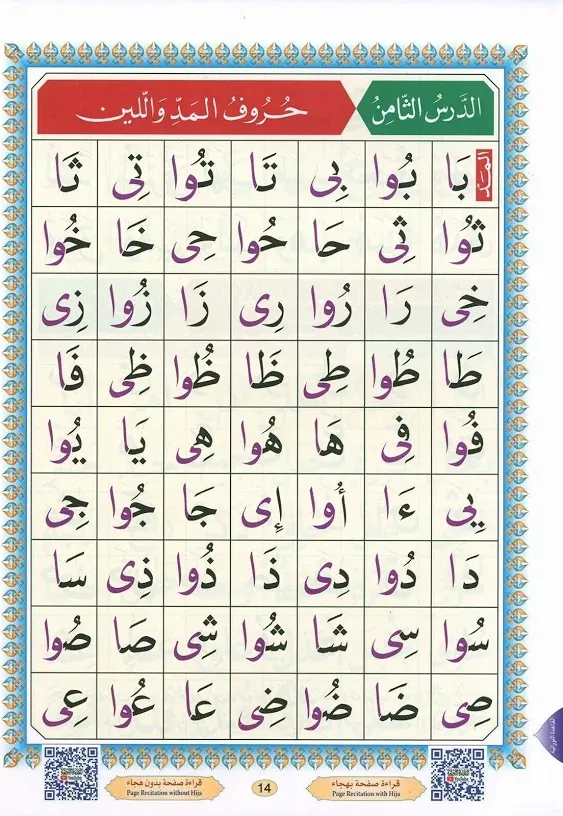 الدَّرْسُ الثَّامِنُ حُرُوفُ المَدِّ وَاللِّين
المَدّ
بَا بُوا بِى تَا تُوا تِى ثَا
ثُوا ثِى حَا حُوا حِى خَا خُوا
خِى رَا رُوا رِى زَا زُوا زِى
طَا طُوا طِى ظَا ظُوا ظِى فَا
فُوا فِى هَا هُوا هِى يَا يُوا
يِى ءَا أُوا إِى جَا جُوا جِى
دَا دُوا دِى ذَا ذُوا ذِى سَا
سُوا سِى شَا شُوا شِى صَا صُوا
صِى ضَا ضُوا ضِى عَا عُوا عِى
القاعدة النورانية
قراءة صفحة بهجاء
Page Recitation with Hija
14
قراءة صفحة بدون هجاء
Page Recitation without Hija